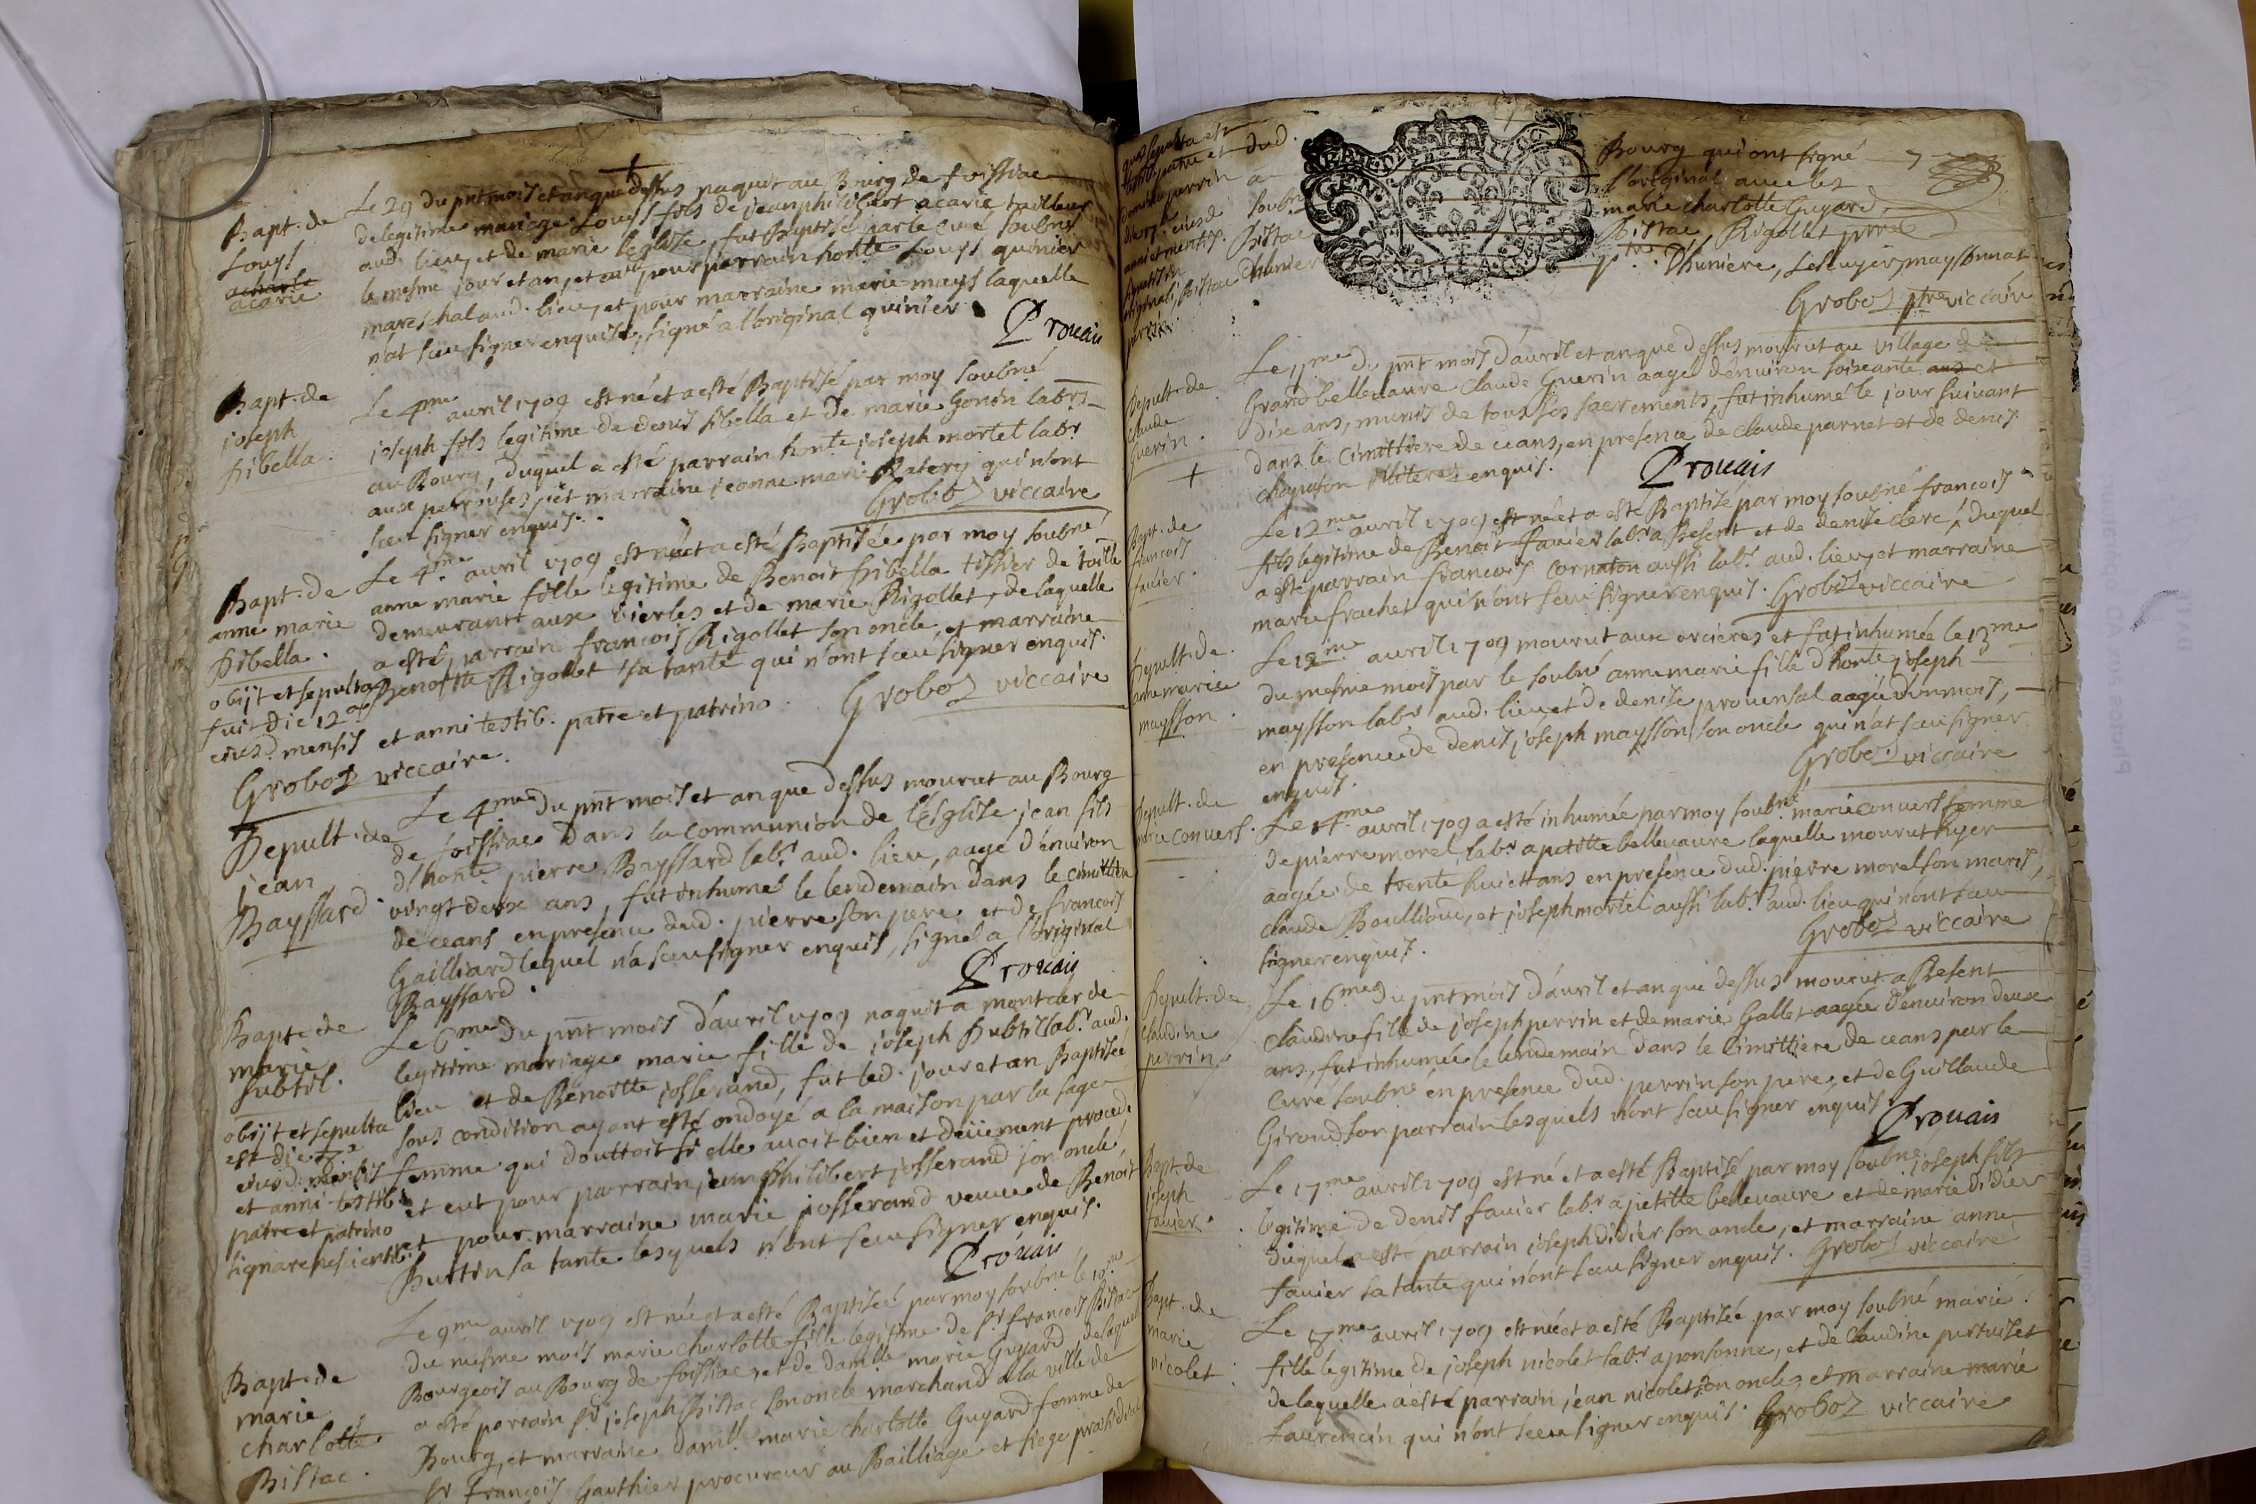 Bapt. de
Louys
acarie
Le 29 du pnt mois et an que dessus naquit au Bourg de foissiac
de legitime mariage Louys fils de jean philibert acarie tailleur
aud. lieu, et de marie leglise, fut Baptisé par le curé soubné
le mesme jour et an, et eut pour parrain honte Louys quinier
mareschal aud. lieu, et pour marraine marie mays laquelle
n'at sceu signer enquise, signé a l'original quinier
Prouais
Bapt. de
joseph
sibella.
Le 4me avril 1709 est né et a esté Baptisé par moy soubné
joseph fils legitime de denis sibella et de marie Gonin labrs
au Bourg, duquel a esté parrain honte joseph mortel labr
aux perouses, et marraine jeanne marie Ratery qui n'ont
sceu signer enquis.
Groboz viccaire
Bapt. de
anne marie
sibella.
obijt et sepulta
fuit die 12a
eiusd. mensis et anni testib. patre et patrino.
Groboz viccaire.
Le 4me avril 1709 est née et a esté Baptisée par moy soubné
anne marie fille legitime de Benoit sibella tissier de toille
demeurant aux vierles et de marie Rigollet, de laquelle
a esté parrain francois Rigollet son oncle, et marraine
Benoitte Rigollet sa tante qui n'ont sceu signer enquis.
Groboz viccaire
Sepult. de
jean
Bayssard.
Le 4me du pnt mois et an que dessus mourut au Bourg
de foissiac dans la communion de l'Esglise jean fils
d'honte pierre Bayssard labr aud. lieu, aagé d'environ
vingt deux ans, fut inhumé le lendemain dans le cimittiere
de ceans en presence dud. pierre son pere et de francois
Gailliard lequel n'a sceu signer enquis, signé a l'original
Bayssard.
Prouais
Bapt. de
marie
subtil.
obijt et sepulta
est die
eiusd. mensis
et anni testib.
patre et patrino
signare nescientib.
Le 6me du pnt mois d'avril 1709 naquit a
legitime mariage marie fille de joseph subtil labr aud.
lieu et de Benoitte josserand, fut led. jour et an Baptisée
sous condition ayant esté ondoyé a la maison par la sage
femme qui douttoit si elle avoit bien et deüement procedé
et eut pour parrain jean philibert josserand son oncle
et pour marraine marie josserand veuve de Benoit
Burtin sa tante lesquels n'ont sceu signer enquis.
Prouais
Bapt. de
marie
charlotte
Bistac.
Le 9me avril 1709 est née et a esté Baptisée par moy soubné le 10me
du mesme mois marie charlotte fille legitime de sr francois Bistac
Bourgeois au Bourg de foissiac, et de damlle marie Guyard, de laquelle
a esté parrain sr joseph Bistac son oncle marchand a la ville de
Bourg, et marraine damlle marie charlotte Guyard femme de
sr francois Gauthier procureur au Bailliage et siege presidial
Bourg qui ont signé
l'original avec les
marie charlotte Guyard
Bistac Rigollet
Thuniere, Lescuyer, mayssonnat
Groboz ptre viccaire
7
Sepult. de
claude
Guerin.
Le 11me du pnt mois d'avril et an que dessus mourut au village de
Grand bellevaure Claude Guerin aagé d'environ soixante et
dix ans, munis de tous ses sacrements, fut inhumé le jour suivant
dans le Cimittiere de ceans, en presence de claude parnet et de denis
chapuson illiterés enquis.
Prouais
Bapt. de
francois
favier.
Le 12me avril 1709 est né et a esté Baptisé par moy soubné francois
fils legitime de Benoit favier labr a Besent et de denise clerc, duquel
a esté parrain francois cornaton aussi labr aud. lieu, et marraine
marie frachet qui n'ont sceu signer enquis. Groboz viccaire
Sepult. de
anne marie
maysson.
Le 12me avril 1709 mourut aux orcieres et fut inhumée le 13me
du mesme mois par le soubné anne marie fille d'honte joseph
maysson labr aud. lieu et de denise provensal aagée d'un mois,
en presence de denis joseph maysson son oncle qui n'at sceu signer
enquis.
Groboz viccaire
Sepult. de
marie convers.
Le 14me avril 1709 a esté inhumée par moy soubné marie convers femme
de pierre morel, labr a petitte bellevaure laquelle mourut hyer
aagée de trente huict ans en presence dud. pierre morel son maris,
claude Boullioud, et joseph mortel aussi labrs aud. lieu qui n'ont sceu
signer enquis.
Groboz viccaire
Sepult. de
claudine
perrin
Le 16me du pnt mois d'avril et an que dessus mourut a Besent
claudine fille de joseph perrin et de marie Gallet aagée d'environ deux
ans, fut inhumée le lendemain dans le cimittiere de ceans par le
curé soubné en presence dud. perrin son pere, et de Guillaude
Giroud son parrain lesquels n'ont sceu signer enquis
Prouais
Bapt. de
joseph
favier.
Le 17me avril 1709 est né et a esté Baptisé par moy soubné joseph fils
legitime de denis favier labr a petitte bellevaure et de marie didier
duquel a esté parrain joseph didier son oncle, et marraine anne
favier sa tante qui n'ont sceu signer enquis. Groboz viccaire
Bapt. de
marie
nicolet
Le 17me avril 1709 est née et a esté Baptisée par moy soubné marie
fille legitime de joseph nicolet labr a ponsonne, et de claudine pertuiset
de laquelle a esté parrain jean nicolet son oncle, et marraine marie
Laurencin qui n'ont sceu signer enquis. Groboz viccaire